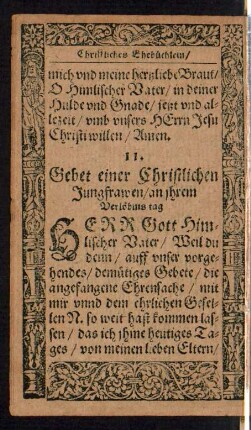 Christliches Ehebüchlein/
mich vnd meine hertzliebe Braut/
O Himlischer Vater/ in deiner
Hulde vnd Gnade/ jetzt vnd al-
lezeit/ vmb vnsers HErrn Jesu
Christi willen/ Amen.
11.
Gebet einer Christlichen
Jungfrawen/ an jhrem
Verlöbnis tag
HERR Gott Him-
lischer Vater/ Weil du
denn/ auff vnser vorge-
hendes/ demütiges Gebete/ die
angefangene Ehrensache/ mit
mir vnnd dem ehrlichen Gesel-
len N. so weit hast kommen las-
sen/ das ich jhme heutiges Ta-
ges/ von meinen lieben Eltern/